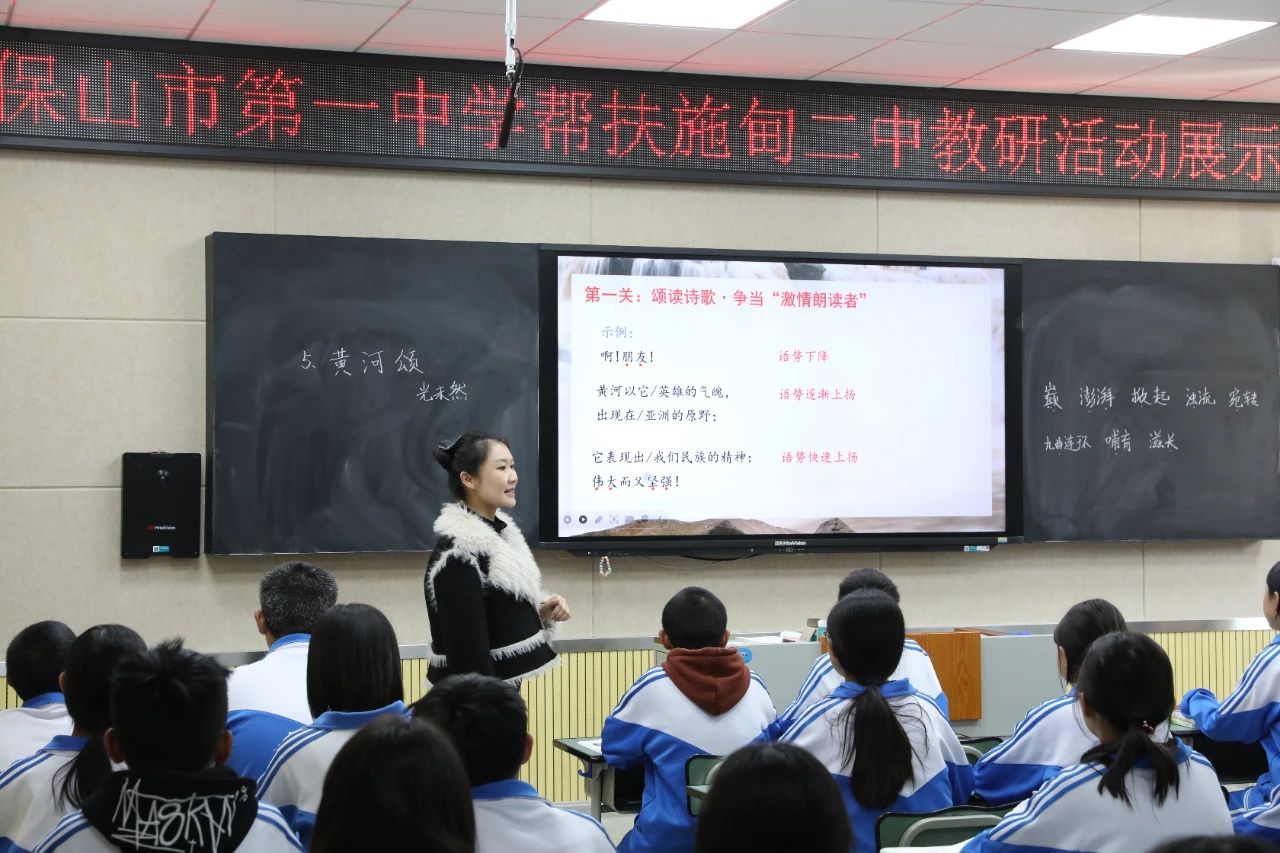 保山市第一中学帮扶施甸二中教研活动展示
5.黄河颂
光未然
第一关：颂读诗歌·争当“激情朗读者”
示例：
啊！朋友！ 语势下降
黄河以它/英雄的气魄， 语势逐渐上扬
出现在/亚洲的原野；
它表现出/我们民族的精神： 语势快速上扬
伟大而又坚强！
巅 澎湃 掀起 浊流 宛转
九曲连环 哺育 滋长
HiteVision
HiteVision